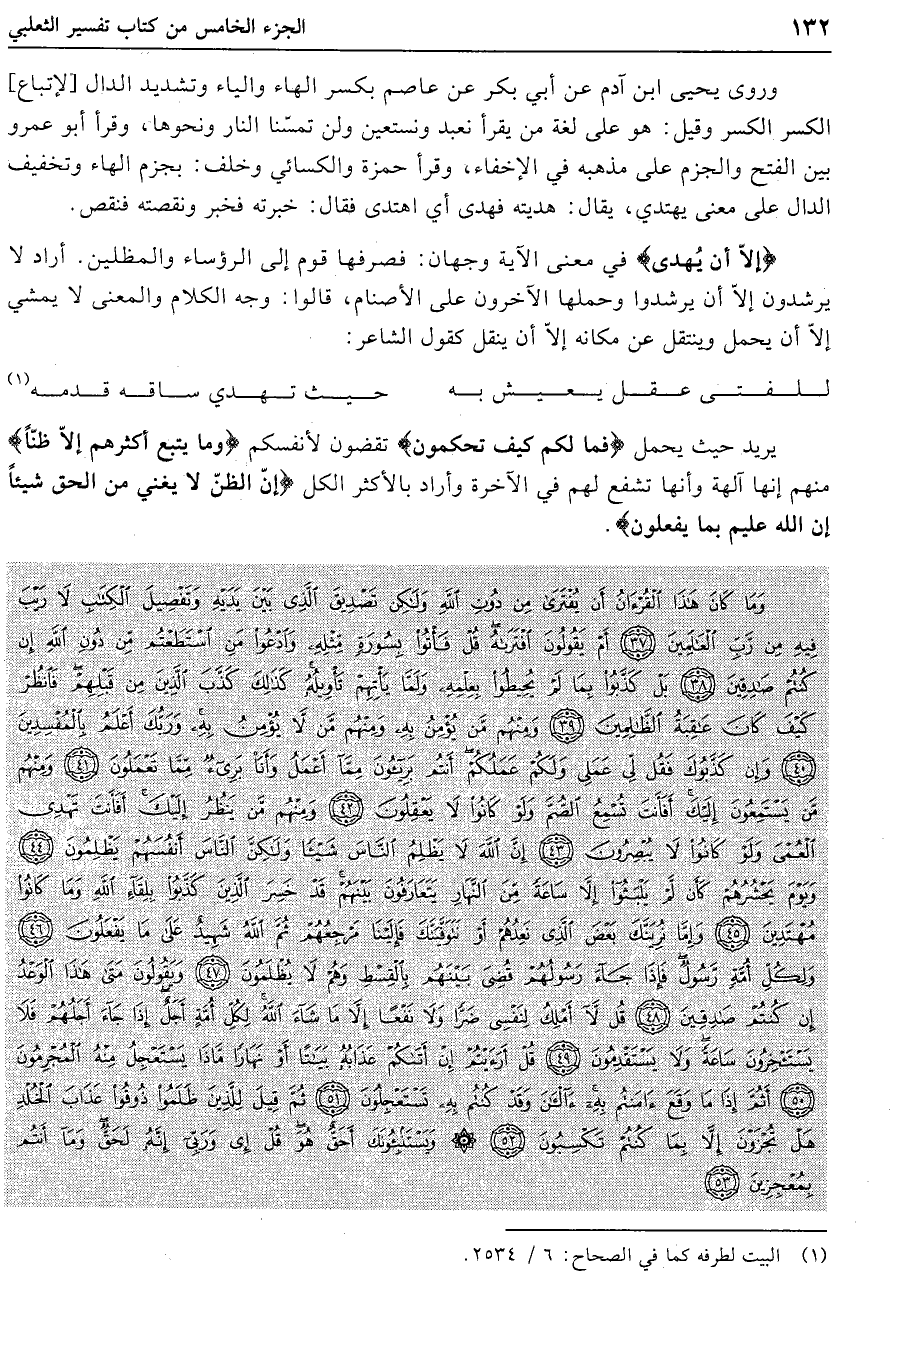 ١٣٢ الجزء الخامس من كتاب تفسير الثعلبي
وروى يحيى ابن آدم عن أبي بكر عن عاصم بكسر الهاء والياء وتشديد الدال [لإتباع]
الكسر الكسر وقيل: هو على لغة من يقرأ نعبد ونستعين ولن تمسّنا النار ونحوها، وقرأ أبو عمرو
بين الفتح والجزم على مذهبه في الإخفاء، وقرأ حمزة والكسائي وخلف: بجزم الهاء وتخفيف
الدال على معنى يهتدي، يقال: هديته فهدى أي اهتدى فقال: خبرته فخبر ونقصته فنقص.
﴿إلاّ أن يُهدى﴾ في معنى الآية وجهان: فصرفها قوم إلى الرؤساء والمظلين. أراد لا
يرشدون إلاّ أن يرشدوا وحملها الآخرون على الأصنام، قالوا: وجه الكلام والمعنى لا يمشي
إلاّ أن يحمل وينتقل عن مكانه إلاّ أن ينقل كقول الشاعر:
للفتى عقل يعيش به حيث تهدي ساقه قدمه(١)
يريد حيث يحمل ﴿فما لكم كيف تحكمون﴾ تقضون لأنفسكم ﴿وما يتبع أكثرهم إلاّ ظنّاً﴾
منهم إنها آلهة وأنها تشفع لهم في الآخرة وأراد بالأكثر الكل ﴿إنّ الظنّ لا يغني من الحق شيئاً
إن الله عليم بما يفعلون﴾.
وَمَا كَانَ هَٰذَا ٱلْقُرْءَانُ أَن يُفْتَرَىٰ مِن دُونِ ٱللَّهِ وَلَٰكِن تَصْدِيقَ ٱلَّذِى بَيْنَ يَدَيْهِ وَتَفْصِيلَ ٱلْكِتَٰبِ لَا رَيْبَ
فِيهِ مِن رَّبِّ ٱلْعَٰلَمِينَ ﴿٣٧﴾ أَمْ يَقُولُونَ ٱفْتَرَىٰهُ ۖ قُلْ فَأْتُوا۟ بِسُورَةٍ مِّثْلِهِۦ وَٱدْعُوا۟ مَنِ ٱسْتَطَعْتُم مِّن دُونِ ٱللَّهِ إِن
كُنتُمْ صَٰدِقِينَ ﴿٣٨﴾ بَلْ كَذَّبُوا۟ بِمَا لَمْ يُحِيطُوا۟ بِعِلْمِهِۦ وَلَمَّا يَأْتِهِمْ تَأْوِيلُهُۥ ۚ كَذَٰلِكَ كَذَّبَ ٱلَّذِينَ مِن قَبْلِهِمْ ۖ فَٱنظُرْ
كَيْفَ كَانَ عَٰقِبَةُ ٱلظَّٰلِمِينَ ﴿٣٩﴾ وَمِنْهُم مَّن يُؤْمِنُ بِهِۦ وَمِنْهُم مَّن لَّا يُؤْمِنُ بِهِۦ ۚ وَرَبُّكَ أَعْلَمُ بِٱلْمُفْسِدِينَ
﴿٤٠﴾ وَإِن كَذَّبُوكَ فَقُل لِّى عَمَلِى وَلَكُمْ عَمَلُكُمْ ۖ أَنتُم بَرِيٓـُٔونَ مِمَّآ أَعْمَلُ وَأَنَا۠ بَرِىٓءٌ مِّمَّا تَعْمَلُونَ ﴿٤١﴾ وَمِنْهُم
مَّن يَسْتَمِعُونَ إِلَيْكَ ۚ أَفَأَنتَ تُسْمِعُ ٱلصُّمَّ وَلَوْ كَانُوا۟ لَا يَعْقِلُونَ ﴿٤٢﴾ وَمِنْهُم مَّن يَنظُرُ إِلَيْكَ ۚ أَفَأَنتَ تَهْدِى
ٱلْعُمْىَ وَلَوْ كَانُوا۟ لَا يُبْصِرُونَ ﴿٤٣﴾ إِنَّ ٱللَّهَ لَا يَظْلِمُ ٱلنَّاسَ شَيْـًٔا وَلَٰكِنَّ ٱلنَّاسَ أَنفُسَهُمْ يَظْلِمُونَ ﴿٤٤﴾
وَيَوْمَ يَحْشُرُهُمْ كَأَن لَّمْ يَلْبَثُوٓا۟ إِلَّا سَاعَةً مِّنَ ٱلنَّهَارِ يَتَعَارَفُونَ بَيْنَهُمْ ۚ قَدْ خَسِرَ ٱلَّذِينَ كَذَّبُوا۟ بِلِقَآءِ ٱللَّهِ وَمَا كَانُوا۟
مُهْتَدِينَ ﴿٤٥﴾ وَإِمَّا نُرِيَنَّكَ بَعْضَ ٱلَّذِى نَعِدُهُمْ أَوْ نَتَوَفَّيَنَّكَ فَإِلَيْنَا مَرْجِعُهُمْ ثُمَّ ٱللَّهُ شَهِيدٌ عَلَىٰ مَا يَفْعَلُونَ ﴿٤٦﴾
وَلِكُلِّ أُمَّةٍ رَّسُولٌ ۖ فَإِذَا جَآءَ رَسُولُهُمْ قُضِىَ بَيْنَهُم بِٱلْقِسْطِ وَهُمْ لَا يُظْلَمُونَ ﴿٤٧﴾ وَيَقُولُونَ مَتَىٰ هَٰذَا ٱلْوَعْدُ
إِن كُنتُمْ صَٰدِقِينَ ﴿٤٨﴾ قُل لَّآ أَمْلِكُ لِنَفْسِى ضَرًّا وَلَا نَفْعًا إِلَّا مَا شَآءَ ٱللَّهُ ۗ لِكُلِّ أُمَّةٍ أَجَلٌ ۚ إِذَا جَآءَ أَجَلُهُمْ فَلَا
يَسْتَـْٔخِرُونَ سَاعَةً ۖ وَلَا يَسْتَقْدِمُونَ ﴿٤٩﴾ قُلْ أَرَءَيْتُمْ إِنْ أَتَىٰكُمْ عَذَابُهُۥ بَيَٰتًا أَوْ نَهَارًا مَّاذَا يَسْتَعْجِلُ مِنْهُ ٱلْمُجْرِمُونَ
﴿٥٠﴾ أَثُمَّ إِذَا مَا وَقَعَ ءَامَنتُم بِهِۦٓ ۚ ءَآلْـَٰٔنَ وَقَدْ كُنتُم بِهِۦ تَسْتَعْجِلُونَ ﴿٥١﴾ ثُمَّ قِيلَ لِلَّذِينَ ظَلَمُوا۟ ذُوقُوا۟ عَذَابَ ٱلْخُلْدِ
هَلْ تُجْزَوْنَ إِلَّا بِمَا كُنتُمْ تَكْسِبُونَ ﴿٥٢﴾ ۞ وَيَسْتَنۢبِـُٔونَكَ أَحَقٌّ هُوَ ۖ قُلْ إِى وَرَبِّىٓ إِنَّهُۥ لَحَقٌّ ۖ وَمَآ أَنتُم
بِمُعْجِزِينَ ﴿٥٣﴾
(١) البيت لطرفه كما في الصحاح: ٦ / ٢٥٣٤.